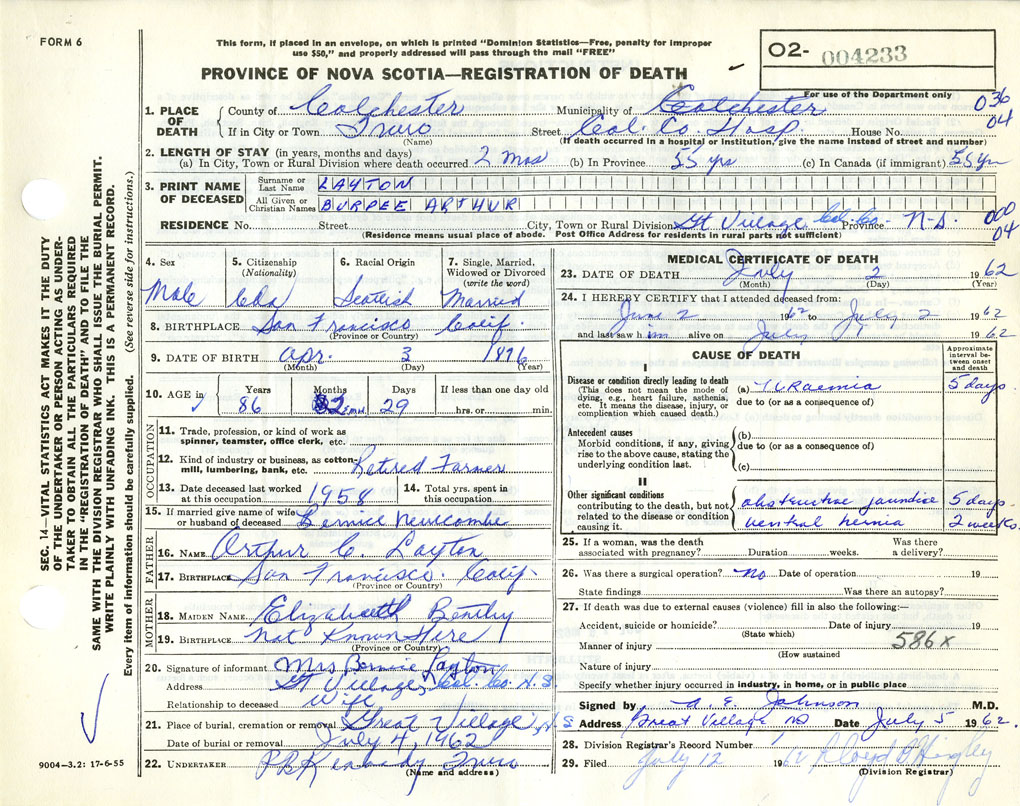 FORM 6
This form, if placed in an envelope, on which is printed "Dominion Statistics—Free, penalty for improper
use $50," and properly addressed will pass through the mail "FREE"
O2- 004233
PROVINCE OF NOVA SCOTIA—REGISTRATION OF DEATH
For use of the Department only
036
04
1. PLACE OF DEATH County of Colchester Municipality of Colchester
If in City or Town Truro Street Col. Co. Hosp House No.
(Name) (If death occurred in a hospital or institution, give the name instead of street and number)
2. LENGTH OF STAY (in years, months and days)
(a) In City, Town or Rural Division where death occurred 2 mos (b) In Province 55 yrs (c) In Canada (if immigrant) 55 yrs
3. PRINT NAME OF DECEASED Surname or Last Name LAYTON
All Given or Christian Names BURPEE ARTHUR
RESIDENCE No. Street City, Town or Rural Division Gt Village Col. Co. Province N-S.
000
04
(Residence means usual place of abode. Post Office Address for residents in rural parts not sufficient)
4. Sex Male
5. Citizenship (Nationality) Cda
6. Racial Origin Scottish
7. Single, Married, Widowed or Divorced (write the word) Married
8. BIRTHPLACE San Francisco Calif.
(Province or Country)
9. DATE OF BIRTH Apr. 3 1876
(Month) (Day) (Year)
10. AGE in Years 86 Months 2 Days 29 If less than one day old hrs. or min.
OCCUPATION
11. Trade, profession, or kind of work as spinner, teamster, office clerk, etc.
12. Kind of industry or business, as cotton-mill, lumbering, bank, etc. Retired Farmer
13. Date deceased last worked at this occupation 1958 14. Total yrs. spent in this occupation
15. If married give name of wife or husband of deceased Bernice Newcombe
FATHER
16. NAME Arthur C. Layton
17. BIRTHPLACE San Francisco. Calif.
(Province or Country)
MOTHER
18. MAIDEN NAME Elizabeth Bentley
19. BIRTHPLACE Not Known Here
(Province or Country)
20. Signature of informant Mrs Bernice Layton
Address Gt Village, Col. Co. N.S.
Relationship to deceased Wife
21. Place of burial, cremation or removal Great Village, N.S
Date of burial or removal July 4, 1962
22. UNDERTAKER Truro
(Name and address)
MEDICAL CERTIFICATE OF DEATH
23. DATE OF DEATH July 2 1962
(Month) (Day) (Year)
24. I HEREBY CERTIFY that I attended deceased from:
June 2 1962 to July 2 1962
and last saw him alive on July 1 1962
CAUSE OF DEATH
Approximate interval between onset and death
I
Disease or condition directly leading to death (a) Uraemia 5 days.
(This does not mean the mode of dying, e.g., heart failure, asthenia, etc. It means the disease, injury, or complication which caused death.)
due to (or as a consequence of)
Antecedent causes
Morbid conditions, if any, giving rise to the above cause, stating the underlying condition last.
(b)
due to (or as a consequence of)
(c)
II
Other significant conditions contributing to the death, but not related to the disease or condition causing it.
obstructive jaundice 5 days
ventral hernia 2 weeks.
25. If a woman, was the death associated with pregnancy? Duration weeks. Was there a delivery?
26. Was there a surgical operation? No Date of operation 19
State findings Was there an autopsy?
27. If death was due to external causes (violence) fill in also the following:—
Accident, suicide or homicide? Date of injury 19
(State which)
586X
Manner of injury
(How sustained)
Nature of injury
Specify whether injury occurred in industry, in home, or in public place
Signed by E. Johnson M.D.
Address Great Village NS Date July 5 1962.
28. Division Registrar's Record Number
29. Filed July 12 1962
(Division Registrar)
SEC. 14—VITAL STATISTICS ACT MAKES IT THE DUTY
OF THE UNDERTAKER OR PERSON ACTING AS UNDER-
TAKER TO OBTAIN ALL THE PARTICULARS REQUIRED
IN THE "REGISTRATION OF DEATH" AND TO FILE THE
SAME WITH THE DIVISION REGISTRAR WHO SHALL ISSUE THE BURIAL PERMIT.
WRITE PLAINLY WITH UNFADING INK. THIS IS A PERMANENT RECORD.
Every item of information should be carefully supplied. (See reverse side for instructions.)
9004-3.2: 17-6-55